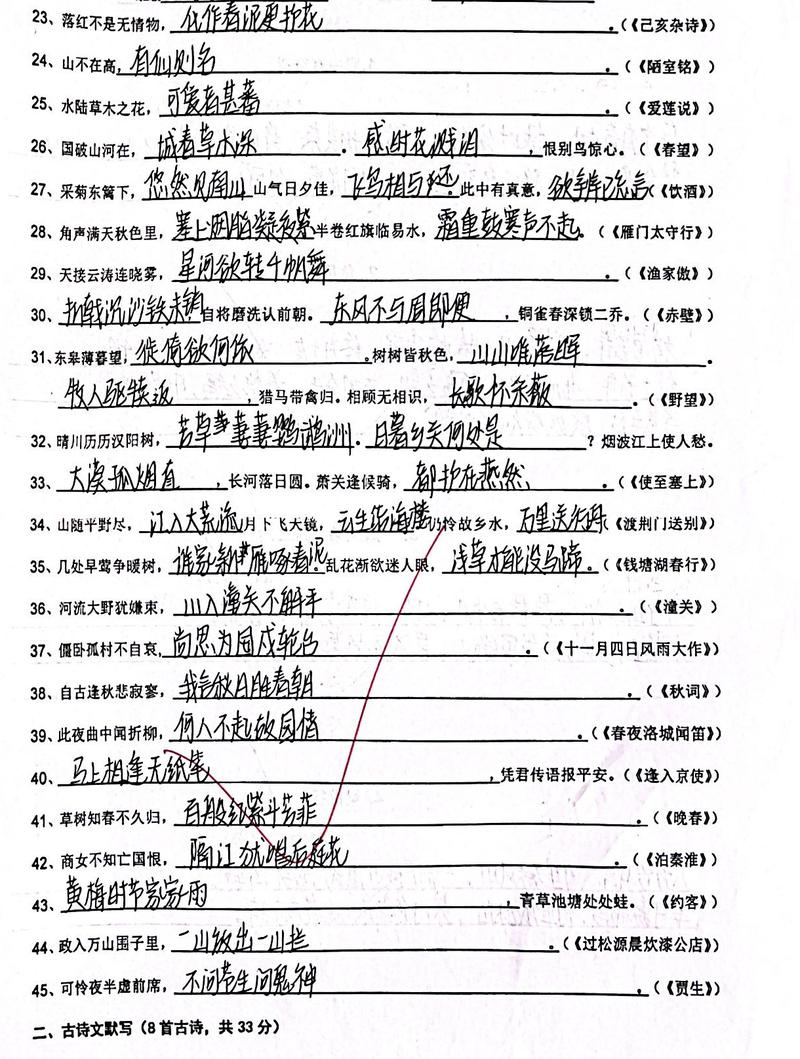 23、落红不是无情物，化作春泥更护花。（《己亥杂诗》）
24、山不在高，有仙则名。（《陋室铭》）
25、水陆草木之花，可爱者甚蕃。（《爱莲说》）
26、国破山河在，城春草木深。感时花溅泪，恨别鸟惊心。（《春望》）
27、采菊东篱下，悠然见南山 山气日夕佳，飞鸟相与还。此中有真意，欲辨已忘言（《饮酒》）
28、角声满天秋色里，塞上胭脂凝夜紫 半卷红旗临易水，霜重鼓寒声不起。（《雁门太守行》）
29、天接云涛连晓雾，星河欲转千帆舞。（《渔家傲》）
30、折戟沉沙铁未销 自将磨洗认前朝。东风不与周郎便，铜雀春深锁二乔。（《赤壁》）
31、东皋薄暮望，徙倚欲何依。树树皆秋色，山山唯落晖。
牧人驱犊返，猎马带禽归。相顾无相识，长歌怀采薇。（《野望》）
32、晴川历历汉阳树，芳草萋萋鹦鹉洲。日暮乡关何处是？烟波江上使人愁。
33、大漠孤烟直，长河落日圆。萧关逢候骑，都护在燕然。（《使至塞上》）
34、山随平野尽，江入大荒流 月下飞天镜，云生结海楼 仍怜故乡水，万里送行舟（《渡荆门送别》）
35、几处早莺争暖树，谁家新燕啄春泥。乱花渐欲迷人眼，浅草才能没马蹄。（《钱塘湖春行》）
36、河流大野犹嫌束，山入潼关不解平。（《潼关》）
37、僵卧孤村不自哀，尚思为国戍轮台。（《十一月四日风雨大作》）
38、自古逢秋悲寂寥，我言秋日胜春朝。（《秋词》）
39、此夜曲中闻折柳，何人不起故园情。（《春夜洛城闻笛》）
40、马上相逢无纸笔，凭君传语报平安。（《逢入京使》）
41、草树知春不久归，百般红紫斗芳菲。（《晚春》）
42、商女不知亡国恨，隔江犹唱后庭花。（《泊秦淮》）
43、黄梅时节家家雨，青草池塘处处蛙。（《约客》）
44、政入万山围子里，一山放出一山拦。（《过松源晨炊漆公店》）
45、可怜夜半虚前席，不问苍生问鬼神。（《贾生》）
二、古诗文默写（8首古诗，共33分）